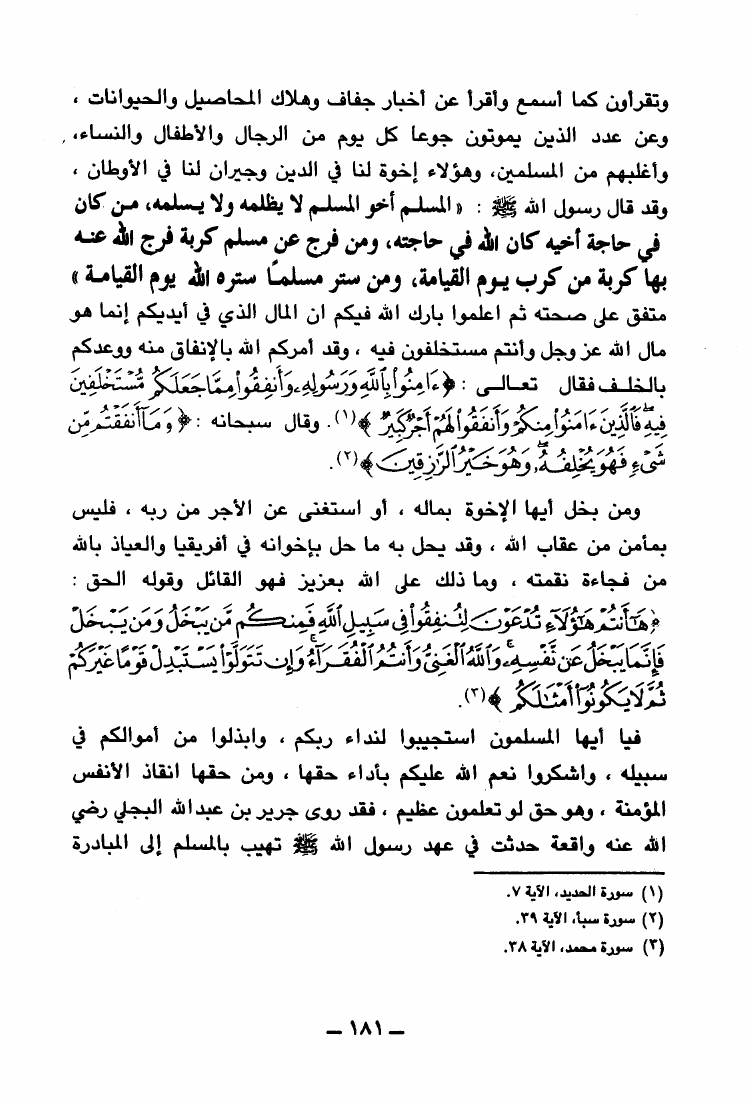 وتقرأون كما أسمع وأقرأ عن أخبار جفاف وهلاك المحاصيل والحيوانات ،
وعن عدد الذين يموتون جوعا كل يوم من الرجال والأطفال والنساء،
وأغلبهم من المسلمين، وهؤلاء إخوة لنا في الدين وجيران لنا في الأوطان ،
وقد قال رسول الله ﷺ : « المسلم أخو المسلم لا يظلمه ولا يسلمه، من كان
في حاجة أخيه كان الله في حاجته، ومن فرج عن مسلم كربة فرج الله عنه
بها كربة من كرب يوم القيامة، ومن ستر مسلمًا ستره الله يوم القيامة »
متفق على صحته ثم اعلموا بارك الله فيكم ان المال الذي في أيديكم إنما هو
مال الله عز وجل وأنتم مستخلفون فيه ، وقد أمركم الله بالإنفاق منه ووعدكم
بالخلف فقال تعالى : ﴿ءَامِنُوا۟ بِٱللَّهِ وَرَسُولِهِۦ وَأَنفِقُوا۟ مِمَّا جَعَلَكُم مُّسْتَخْلَفِينَ
فِيهِ ۖ فَٱلَّذِينَ ءَامَنُوا۟ مِنكُمْ وَأَنفَقُوا۟ لَهُمْ أَجْرٌ كَبِيرٌ﴾(١). وقال سبحانه : ﴿وَمَآ أَنفَقْتُم مِّن
شَىْءٍ فَهُوَ يُخْلِفُهُۥ ۖ وَهُوَ خَيْرُ ٱلرَّٰزِقِينَ﴾(٢).
ومن بخل أيها الإخوة بماله ، أو استغنى عن الأجر من ربه ، فليس
بمأمن من عقاب الله ، وقد يحل به ما حل بإخوانه في أفريقيا والعياذ بالله
من فجاءة نقمته ، وما ذلك على الله بعزيز فهو القائل وقوله الحق :
﴿هَٰٓأَنتُمْ هَٰٓؤُلَآءِ تُدْعَوْنَ لِتُنفِقُوا۟ فِى سَبِيلِ ٱللَّهِ فَمِنكُم مَّن يَبْخَلُ ۖ وَمَن يَبْخَلْ
فَإِنَّمَا يَبْخَلُ عَن نَّفْسِهِۦ ۚ وَٱللَّهُ ٱلْغَنِىُّ وَأَنتُمُ ٱلْفُقَرَآءُ ۚ وَإِن تَتَوَلَّوْا۟ يَسْتَبْدِلْ قَوْمًا غَيْرَكُمْ
ثُمَّ لَا يَكُونُوٓا۟ أَمْثَٰلَكُم﴾(٣).
فيا أيها المسلمون استجيبوا لنداء ربكم ، وابذلوا من أموالكم في
سبيله ، واشكروا نعم الله عليكم بأداء حقها ، ومن حقها انقاذ الأنفس
المؤمنة ، وهو حق لو تعلمون عظيم ، فقد روى جرير بن عبدالله البجلي رضي
الله عنه واقعة حدثت في عهد رسول الله ﷺ تهيب بالمسلم إلى المبادرة
(١) سورة الحديد، الآية ٧.
(٢) سورة سبأ، الآية ٣٩.
(٣) سورة محمد، الآية ٣٨.
— ١٨١ —